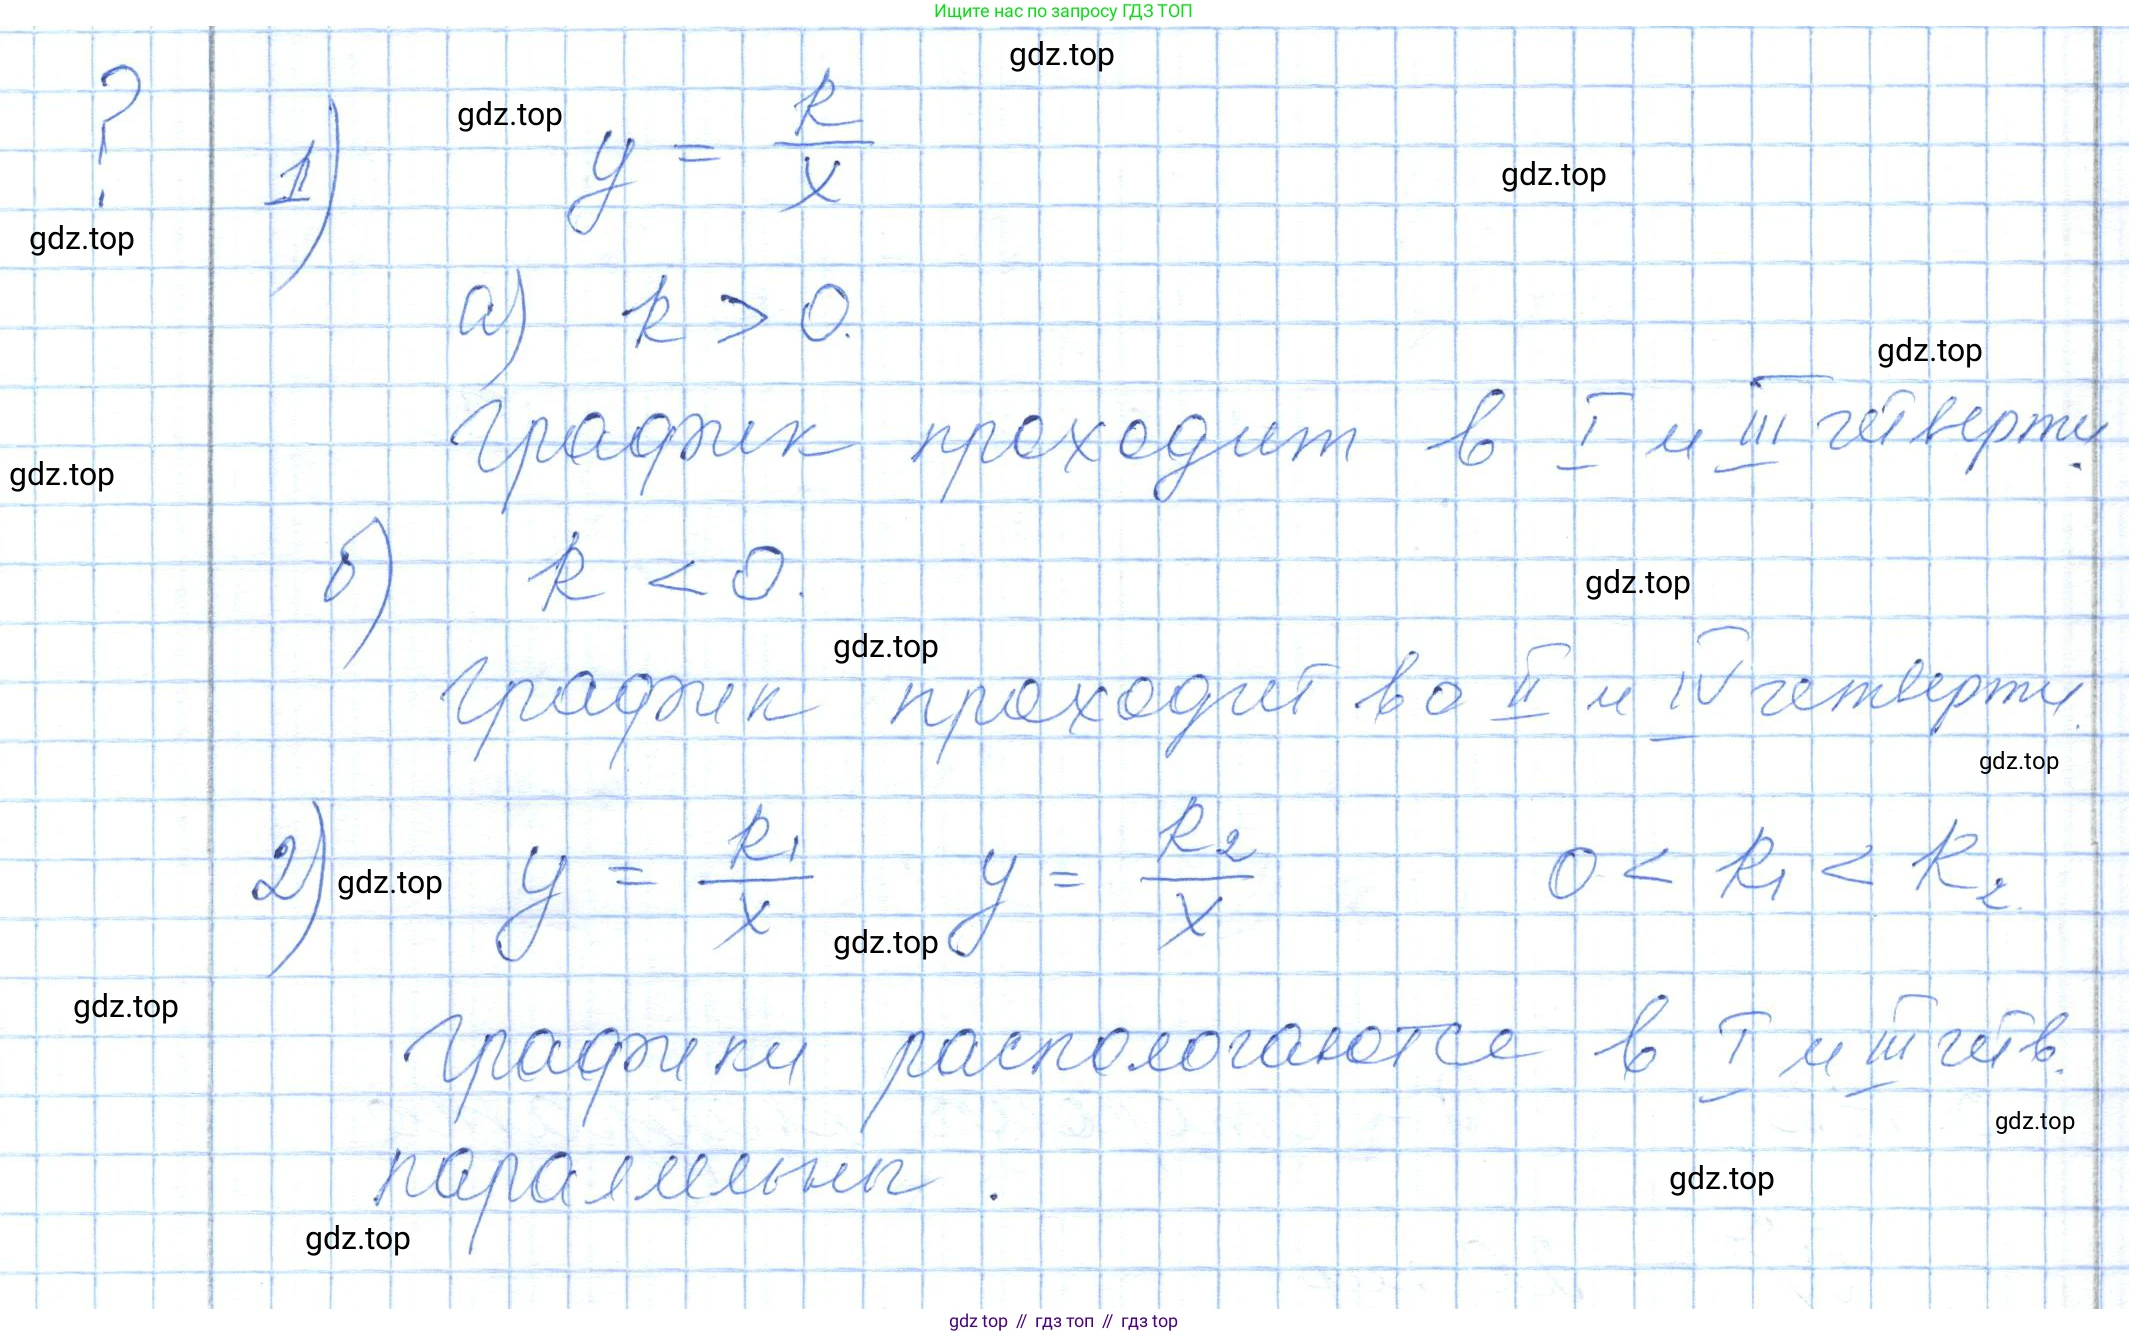 Ищите нас по запросу ГДЗ ТОП
gdz.top
? 1) gdz.top y = k/x
gdz.top
gdz.top
а) k > 0.
gdz.top
График проходит в I и III четверти.
gdz.top
б) k < 0.
gdz.top
gdz.top
График проходит во II и IV четверти.
gdz.top
2) gdz.top y = k₁/x y = k₂/x 0 < k₁ < k₂.
gdz.top
gdz.top
Графики распологаются в I и III четв.
gdz.top
параллельны.
gdz.top
gdz.top
gdz top // гдз топ // гдз top